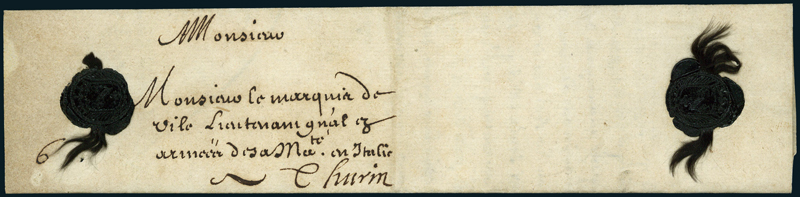 A Monsieur
Monsieur le marquis de
Vile Lieutenant gnâl ez
armeés de sa Ma.té en Italie
Thurin
6